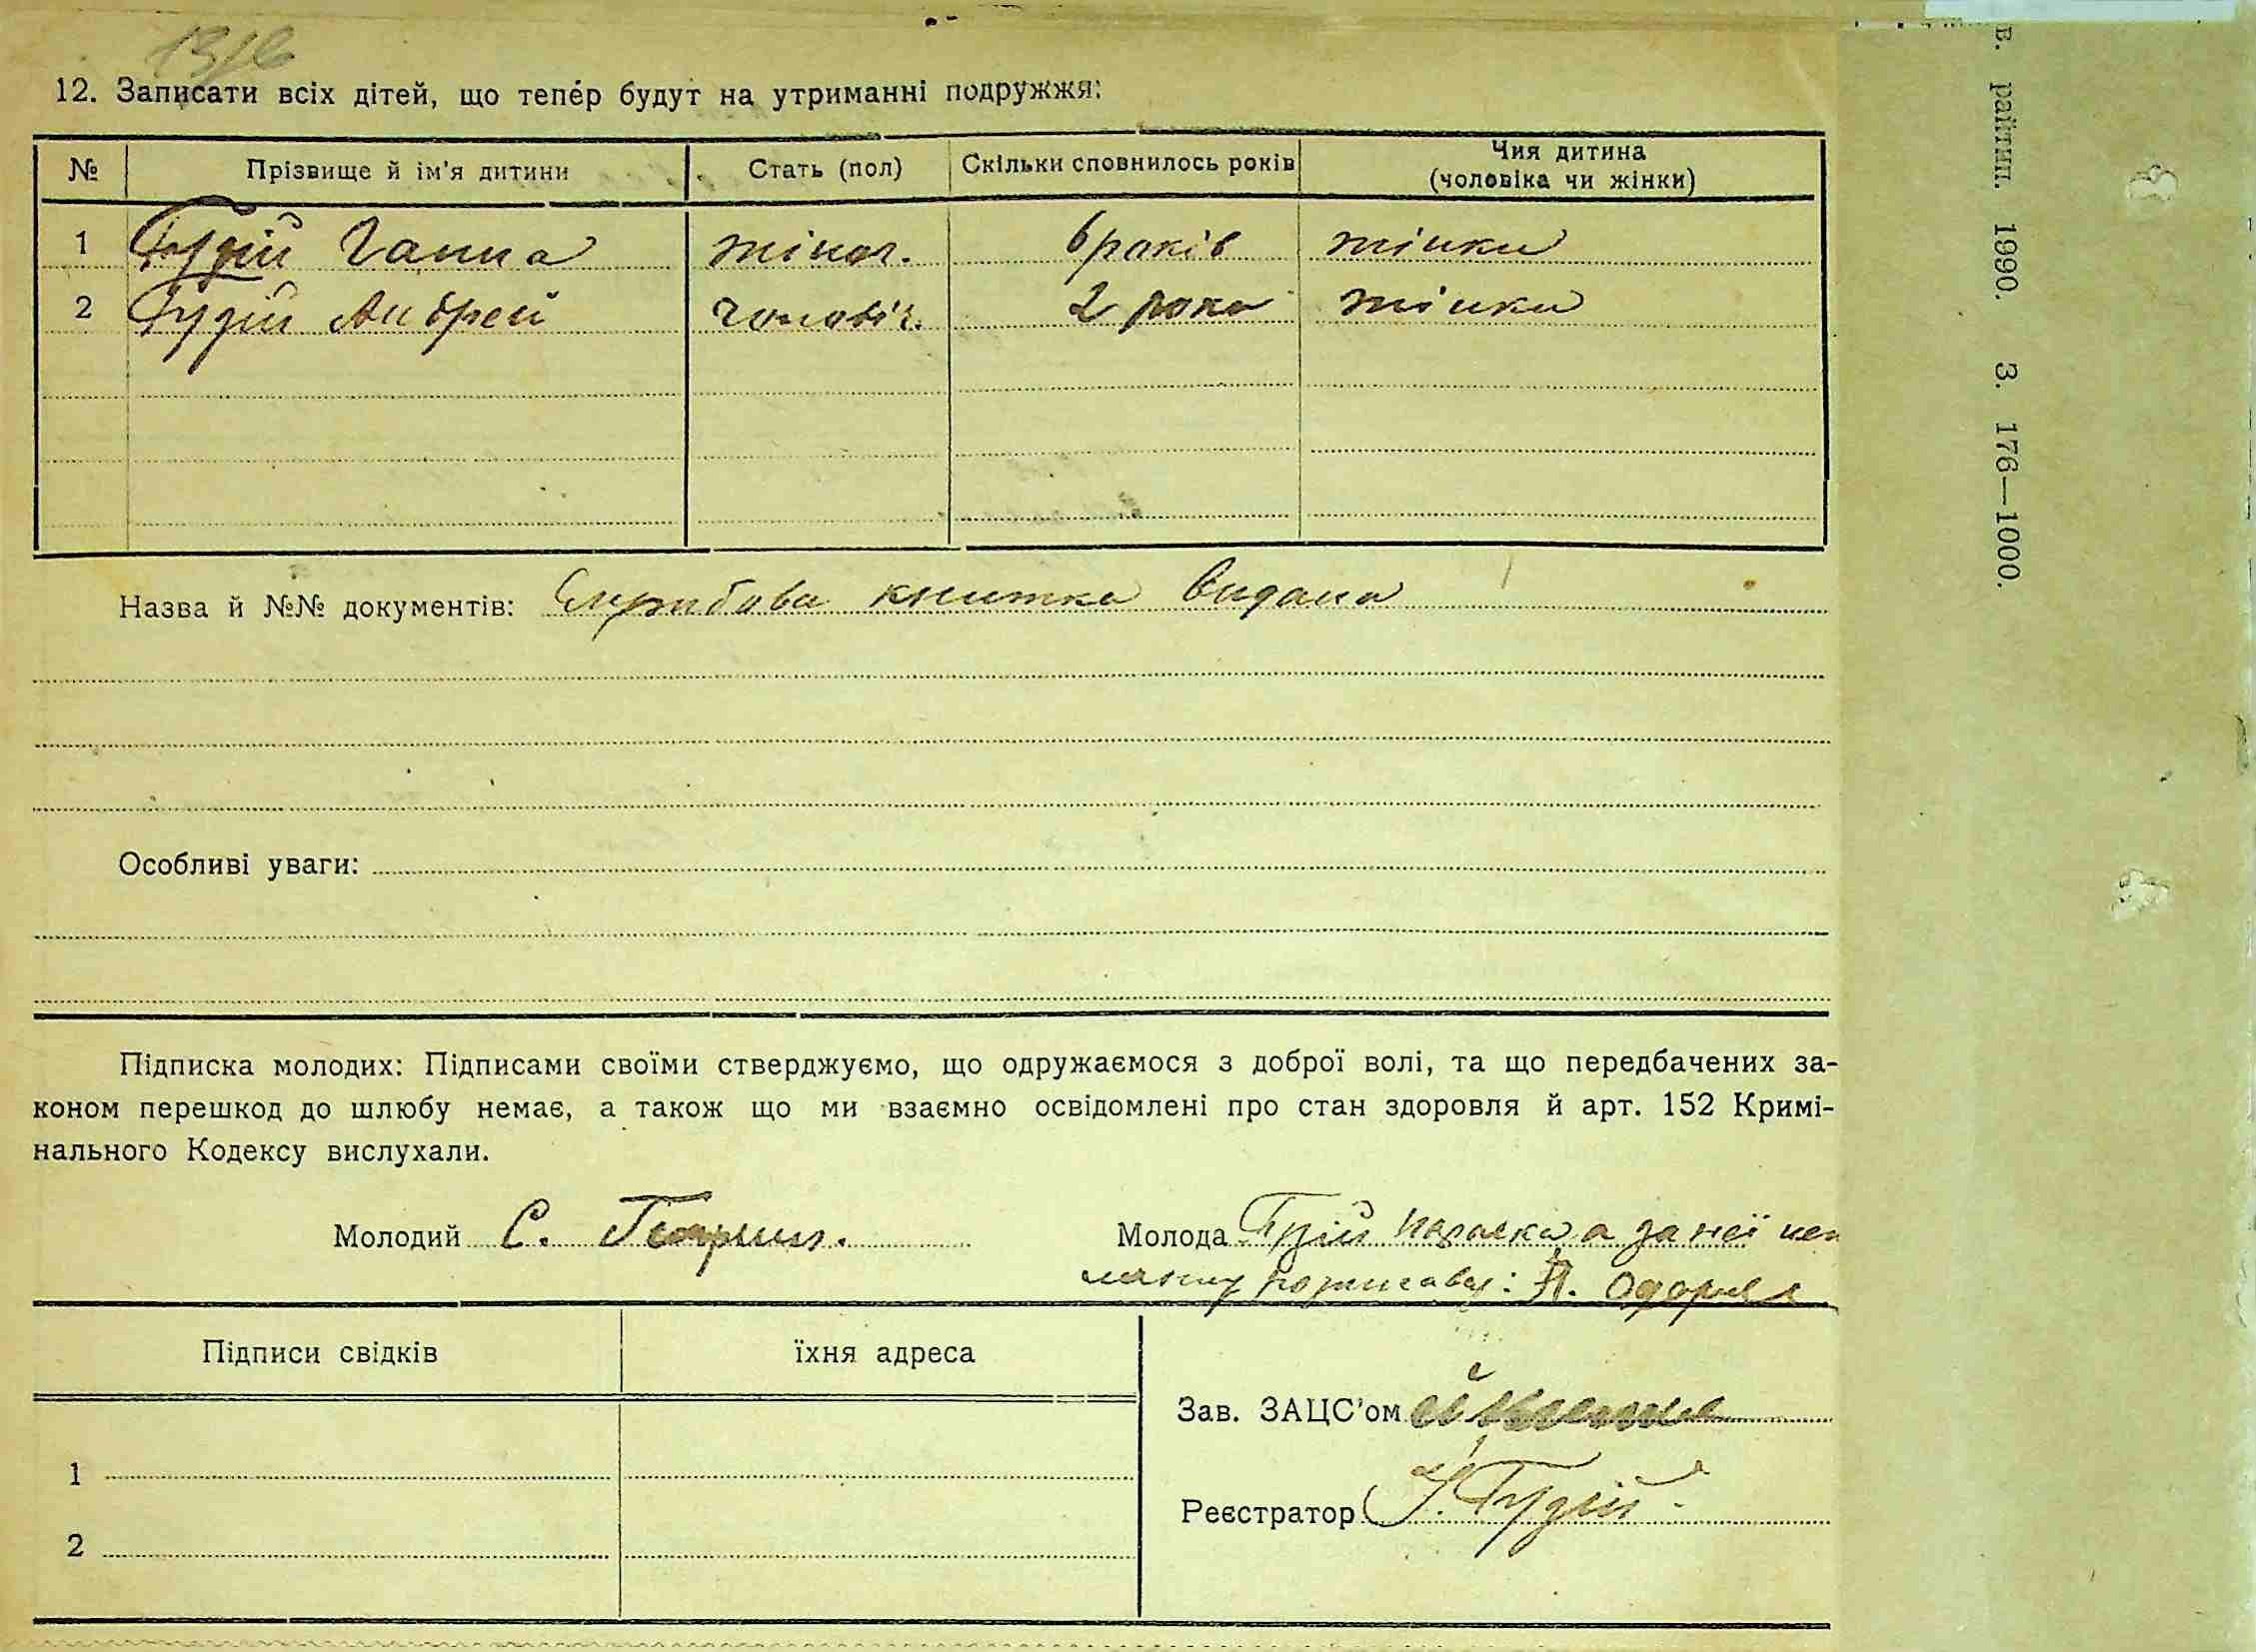 12. Записати всіх дітей, що тепер будут на утриманні подружжя:
№ Прізвище й ім'я дитини Стать (пол) Скільки сповнилось років Чия дитина (чоловіка чи жінки)
1 Гудій Ганна жіноч. 6 років жінки
2 Гудій Андрей чоловіч. 2 рока жінки
Назва й №№ документів: книжка видана
Особливі уваги:
Підписка молодих: Підписами своїми стверджуємо, що одружаємося з доброї волі, та що передбачених за-
коном перешкод до шлюбу немає, а також що ми взаємно освідомлені про стан здоровля й арт. 152 Кримі-
нального Кодексу вислухали.
Молодий С. Молода а за неї
Підписи свідків їхня адреса
Зав. ЗАЦС'ом
1
Реєстратор Гудій
2
Е. райтип. 1990. З. 176—1000.